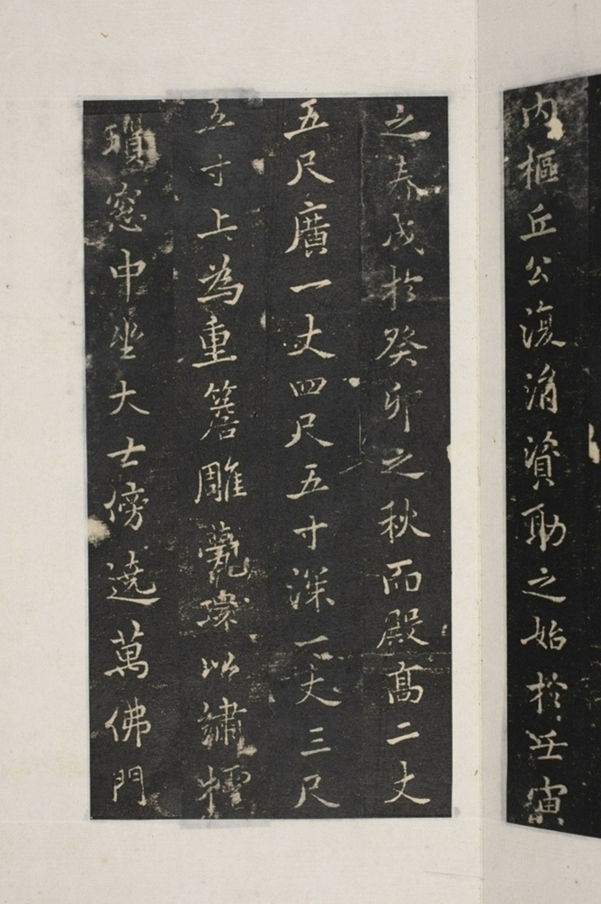 內樞丘公復消資助之始於壬寅
之春成於癸卯之秋而殿高二丈
五尺廣一丈四尺五寸深一丈三尺
五寸上為重簷雕甍環以繡
瑣窓中坐大士傍遶萬佛門